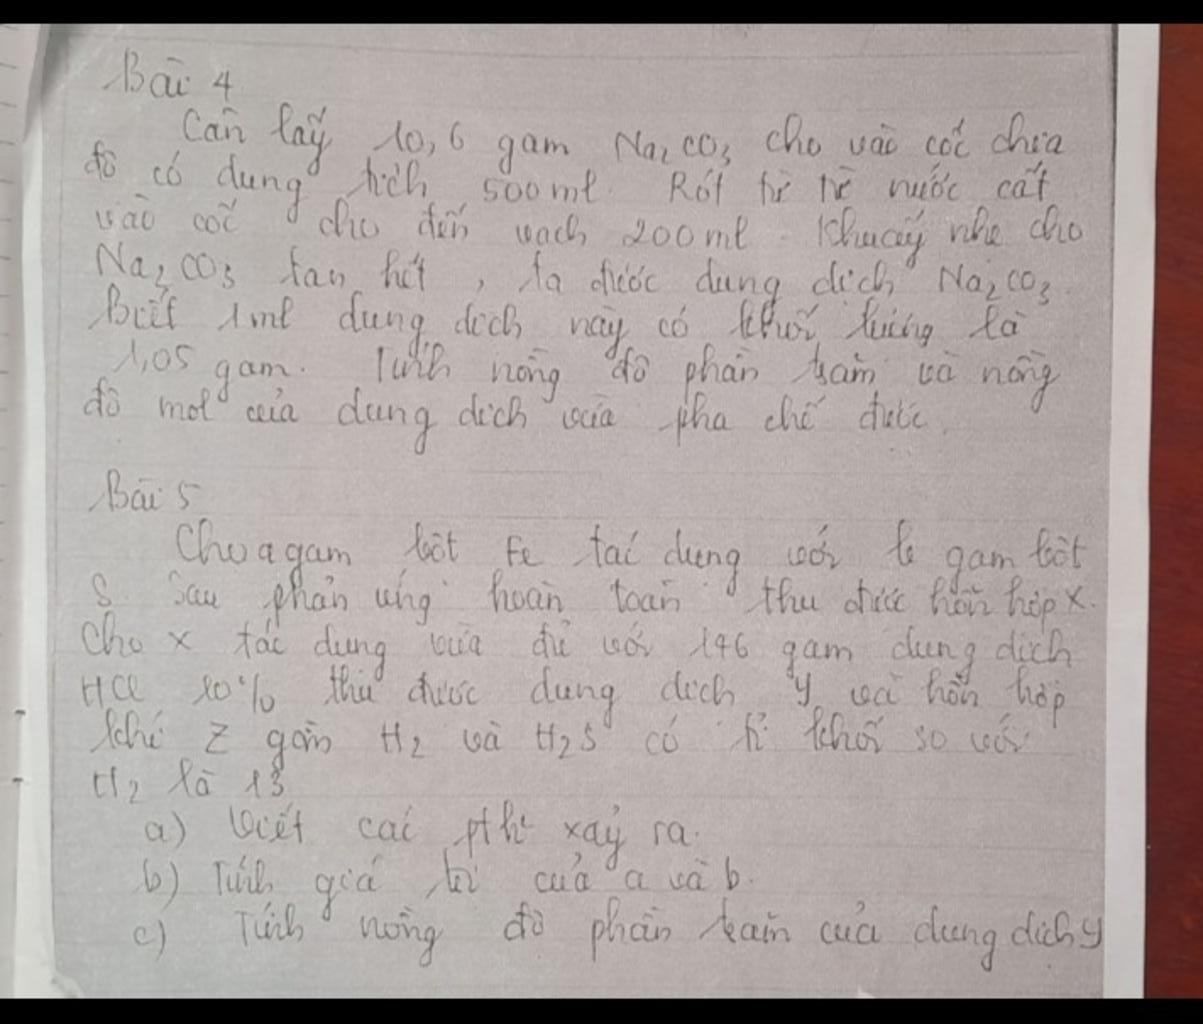 Bài 4
Cân lấy 10,6 gam Na2CO3 cho vào cốc chia
độ có dung tích 500ml. Rót từ từ nước cất
vào cốc cho đến vạch 200ml. Khuấy nhẹ cho
Na2CO3 tan hết, ta được dung dịch Na2CO3.
Biết 1ml dung dịch này có khối lượng là
1,05 gam. Tính nồng độ phần trăm và nồng
độ mol của dung dịch vừa pha chế được.
Bài 5
Cho a gam bột Fe tác dụng với b gam bột
S. Sau phản ứng hoàn toàn thu được hỗn hợp X.
Cho X tác dụng vừa đủ với 146 gam dung dịch
HCl 10% thu được dung dịch Y và hỗn hợp
khí Z gồm H2 và H2S có tỉ khối so với
H2 là 13
a) Viết các pthh xảy ra.
b) Tính giá trị của a và b.
c) Tính nồng độ phần trăm của dung dịch Y